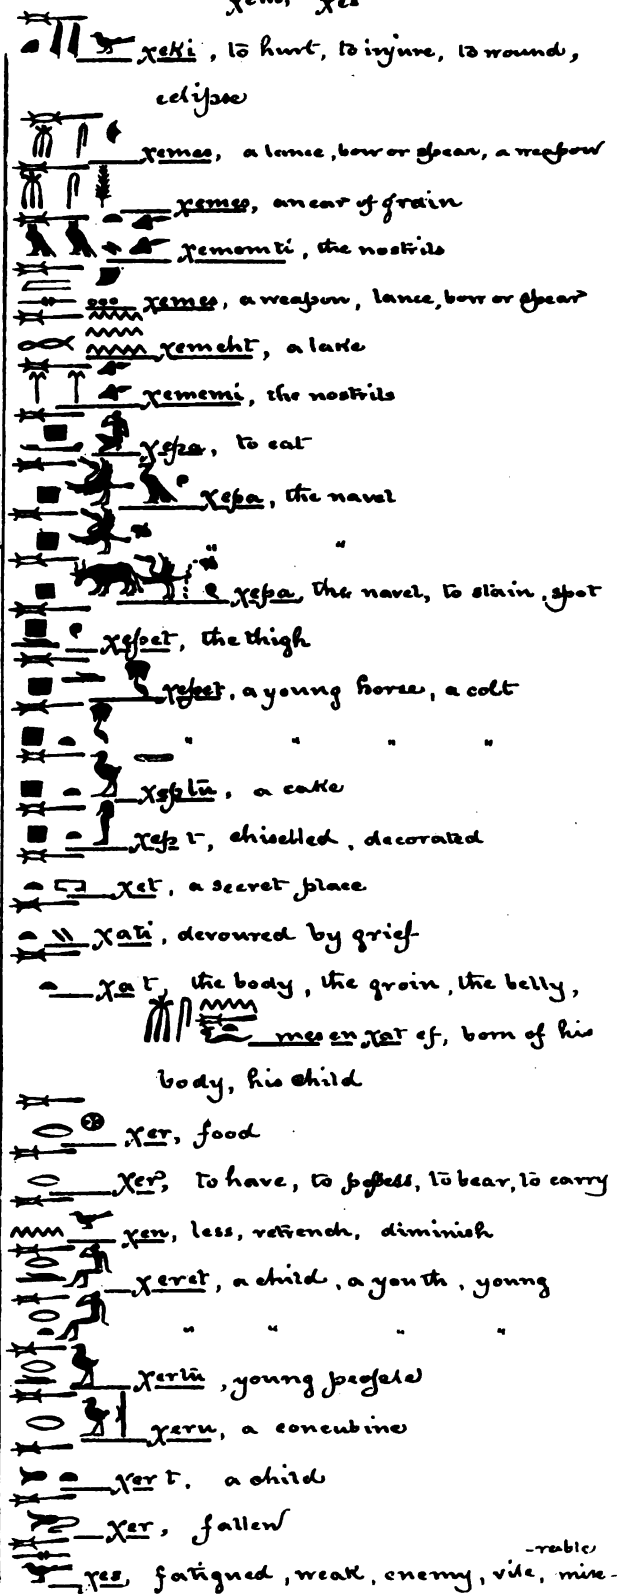 χeki, to hurt, to injure, to wound,
eclipse
χemes, a lance, bow or spear, a weapon
χemes, an ear of grain
χemomti, the nostrils
χemes, a weapon, lance, bow or spear
χemeht, a lake
χememi, the nostrils
χepa, to eat
χepa, the navel
" "
χepa, the navel, to stain, spot
χepet, the thigh
χepet, a young horse, a colt
" " " "
χeptū, a cake
χep t, chiselled, decorated
χet, a secret place
χati, devoured by grief
χa t, the body, the groin, the belly,
mes en χat ef, born of his
body, his child
χer, food
χer, to have, to possess, to bear, to carry
χen, less, retrench, diminish
χeret, a child, a youth, young
" " " "
χertū, young people
χeru, a concubine
χer t, a child
χer, fallen
χes, fatigued, weak, enemy, vile, mise-
-rable